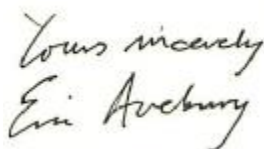 Yours sincerely
Eric Avebury